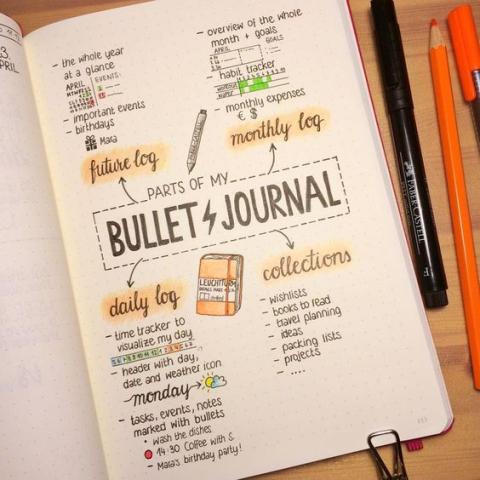 3
APRIL
- the whole year
at a glance
APRIL
EVENTS:
- important events
- birthdays
Mara
future log
- overview of the whole
month + goals
APRIL
GOALS:
- habit tracker
WORKOUT
- monthly expenses
€ $
monthly log
PARTS OF MY
BULLET JOURNAL
daily log
- time tracker to
visualize my day
- header with day,
date and weather icon
monday
- tasks, events, notes
marked with bullets
• wash the dishes
14:30 Coffee with S.
- Mara's birthday party!
LEUCHTTURM
collections
- wishlists
- books to read
- travel planning
- ideas
- packing lists
- projects
- ....
FABER-CASTELL